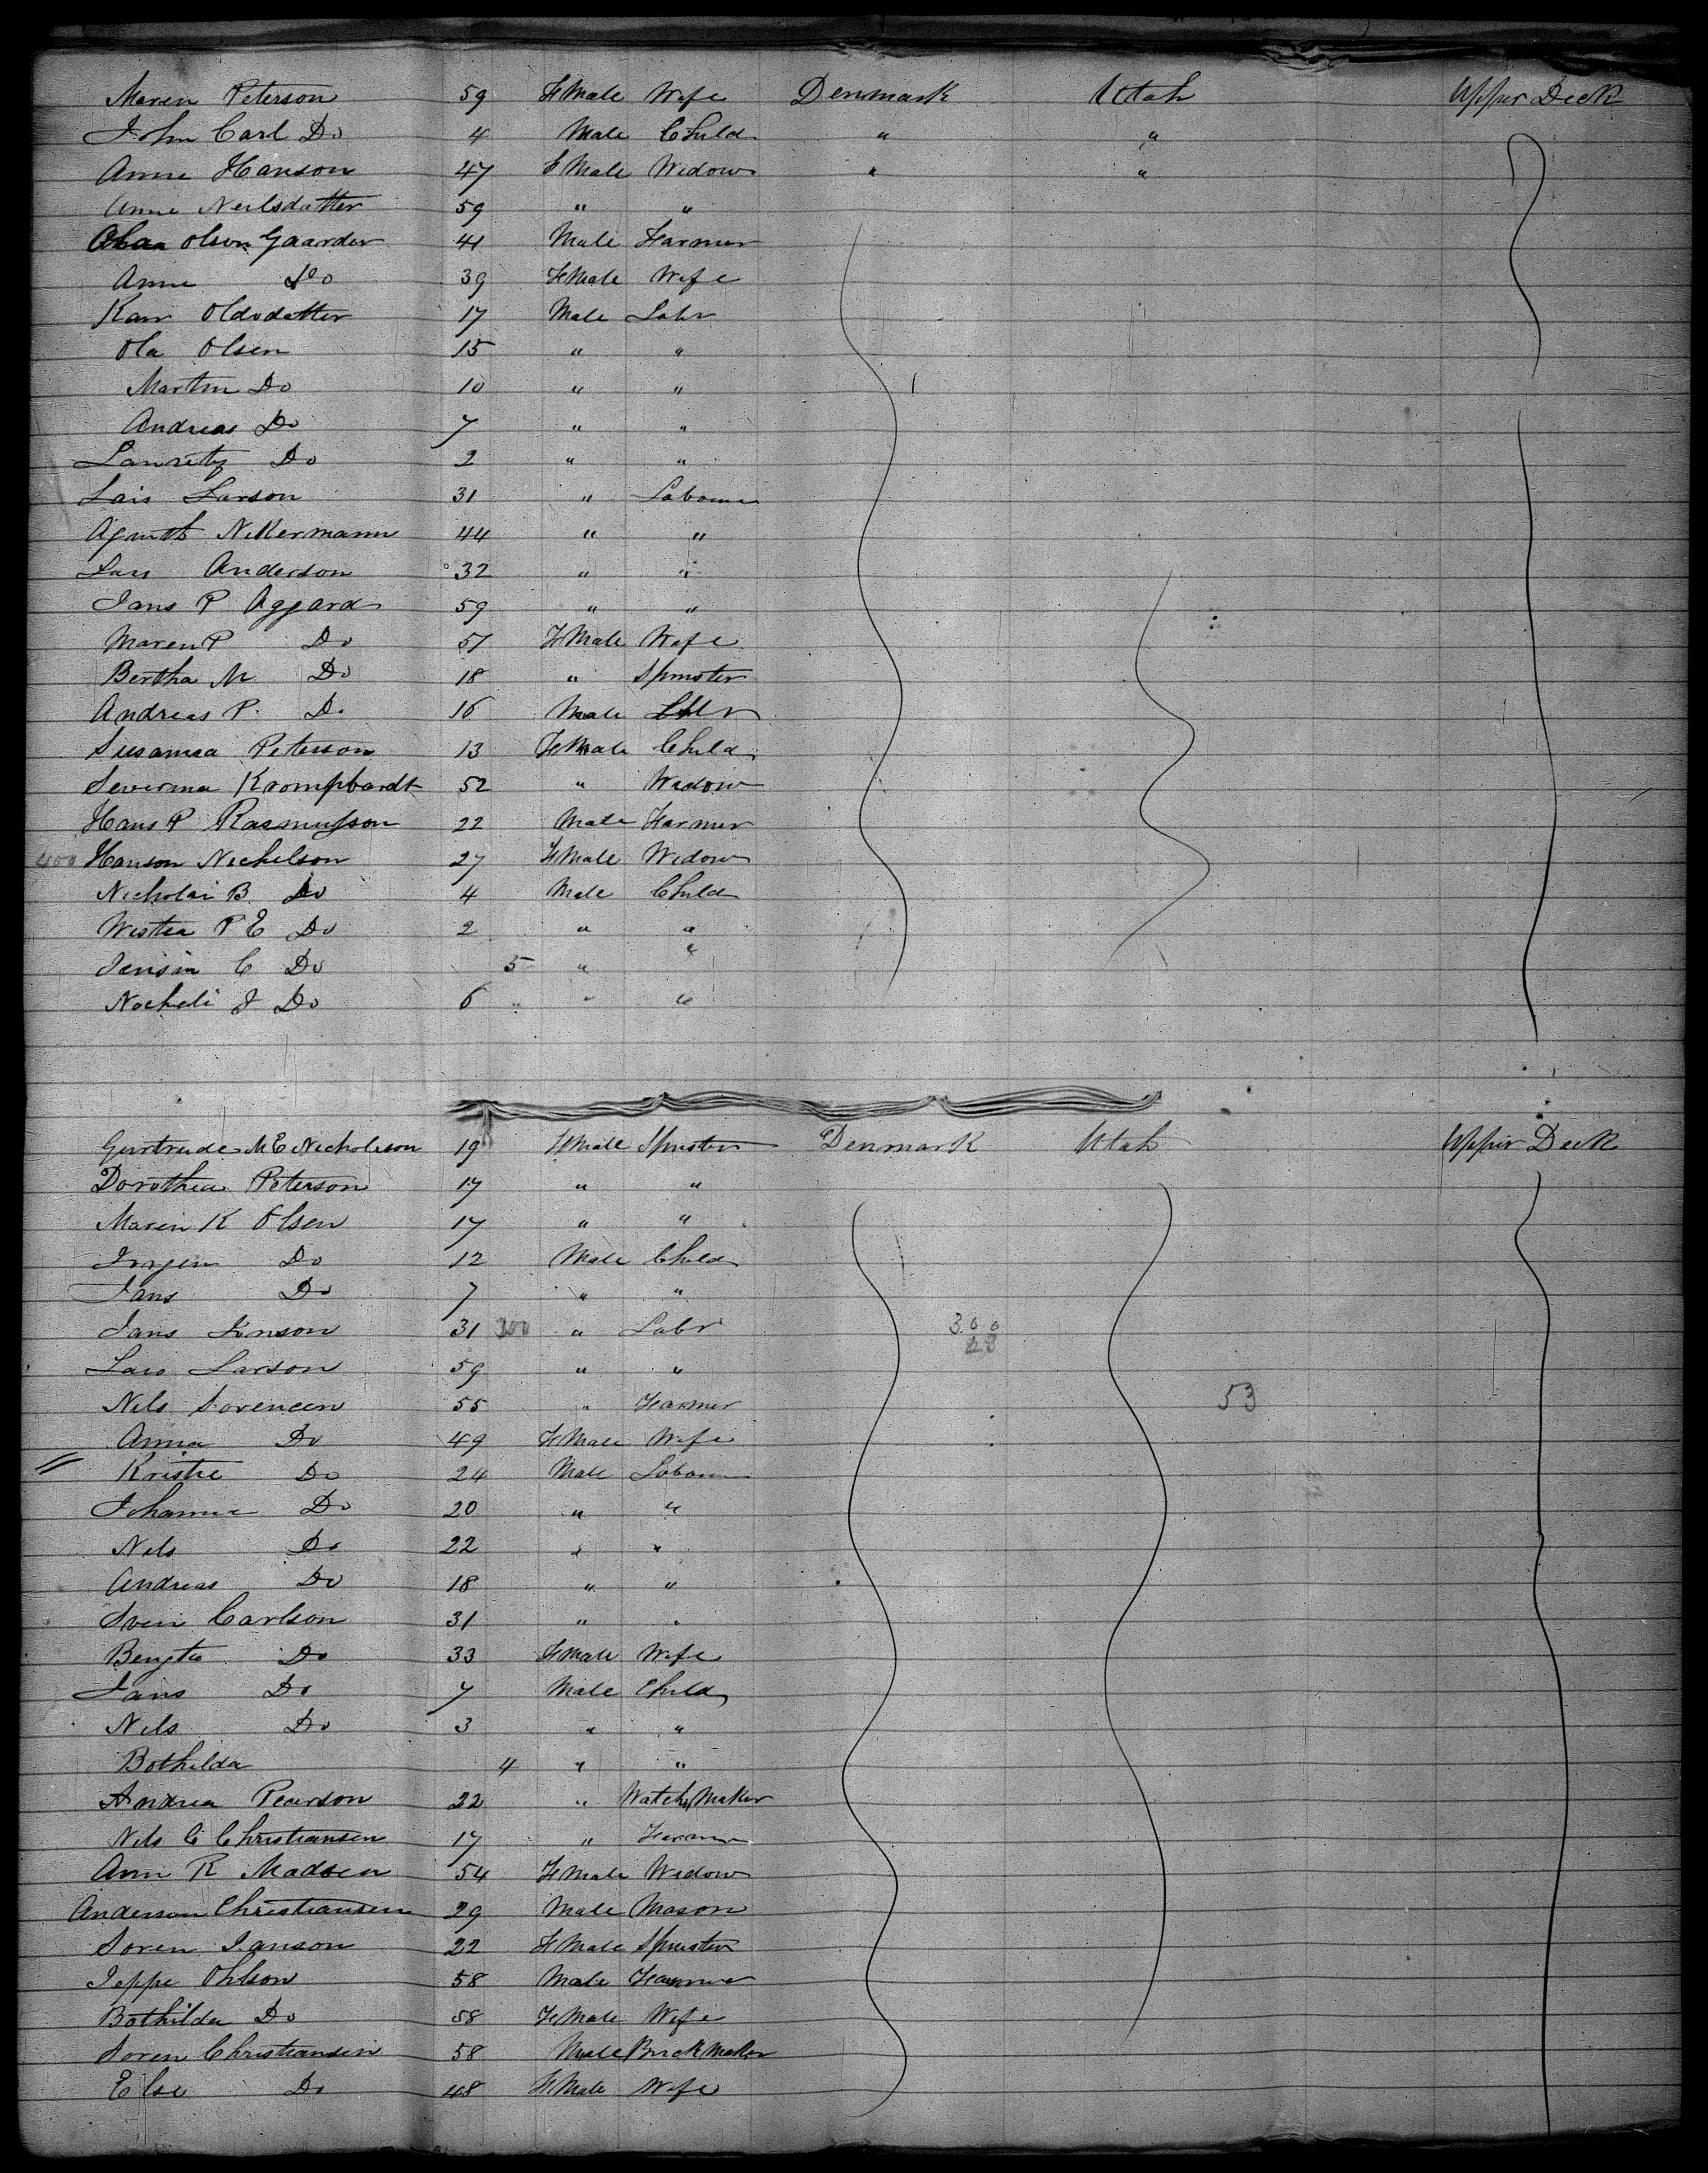 Maren Peterson 59 FMale Wife Denmark Utah Upper Deck
John Carl Do 4 Male Child " "
Anne Hanson 47 FMale Widow " "
Anne Neilsdatter 59 " "
Olsen Gaarder 41 Male Farmer
Anne Do 39 FMale Wife
Karr Olsdatter 17 Male Labr
Ola Olsen 15 " "
Martin Do 10 " "
Andreas Do 7 " "
Lauritz Do 2 " "
Lars Larson 31 " Labourer
Nittermann 44 " "
Lars Anderson 32 " "
Jans P Aggard 59 " "
Maren P Do 57 FMale Wife
Bertha M Do 18 " Spinster
Andreas P. Do 16 Male Labr
Susanna Peterson 13 FMale Child
Severina Krompbardt 52 " Widow
Hans P Rasmusson 22 Male Farmer
400 Hanson Nichelson 27 FMale Widow
Nicholai B Do 4 Male Child
Wistia P E Do 2 " "
Jensin C Do 5 " "
Nocheli J Do 6 " " "
Gurtrude M E Nicholson 19 FMale Spinster Denmark Utah Upper Deck
Dorothea Peterson 17 " "
Maren K Olsen 17 " "
Jorgen Do 12 Male Child
Jans Do 7 " "
Jans Jonson 31 300 " Labr 300
Lars Larson 59 " "
Nils Sorencen 55 " Farmer 53
Anna Do 49 FMale Wife
Kristie Do 24 Male Labourer
Johanna Do 20 " "
Nils Do 22 " "
Andreas Do 18 " "
Sven Carlson 31 " "
Bengta Do 33 FMale Wife
Jans Do 7 Male Child
Nils Do 3 " "
Bothilda 4 " "
Andrea Pearson 22 " Watch Maker
Nils C Christiansen 17 " Farmer
Ann K Madsen 54 FMale Widow
Anderson Christiansen 29 Male Mason
Soren Janson 22 FMale Spinster
Jeppe Ohlson 58 Male Farmer
Bothilda Do 58 FMale Wife
Soren Christiansen 58 Male Brick Maker
Else Do 48 FMale Wife